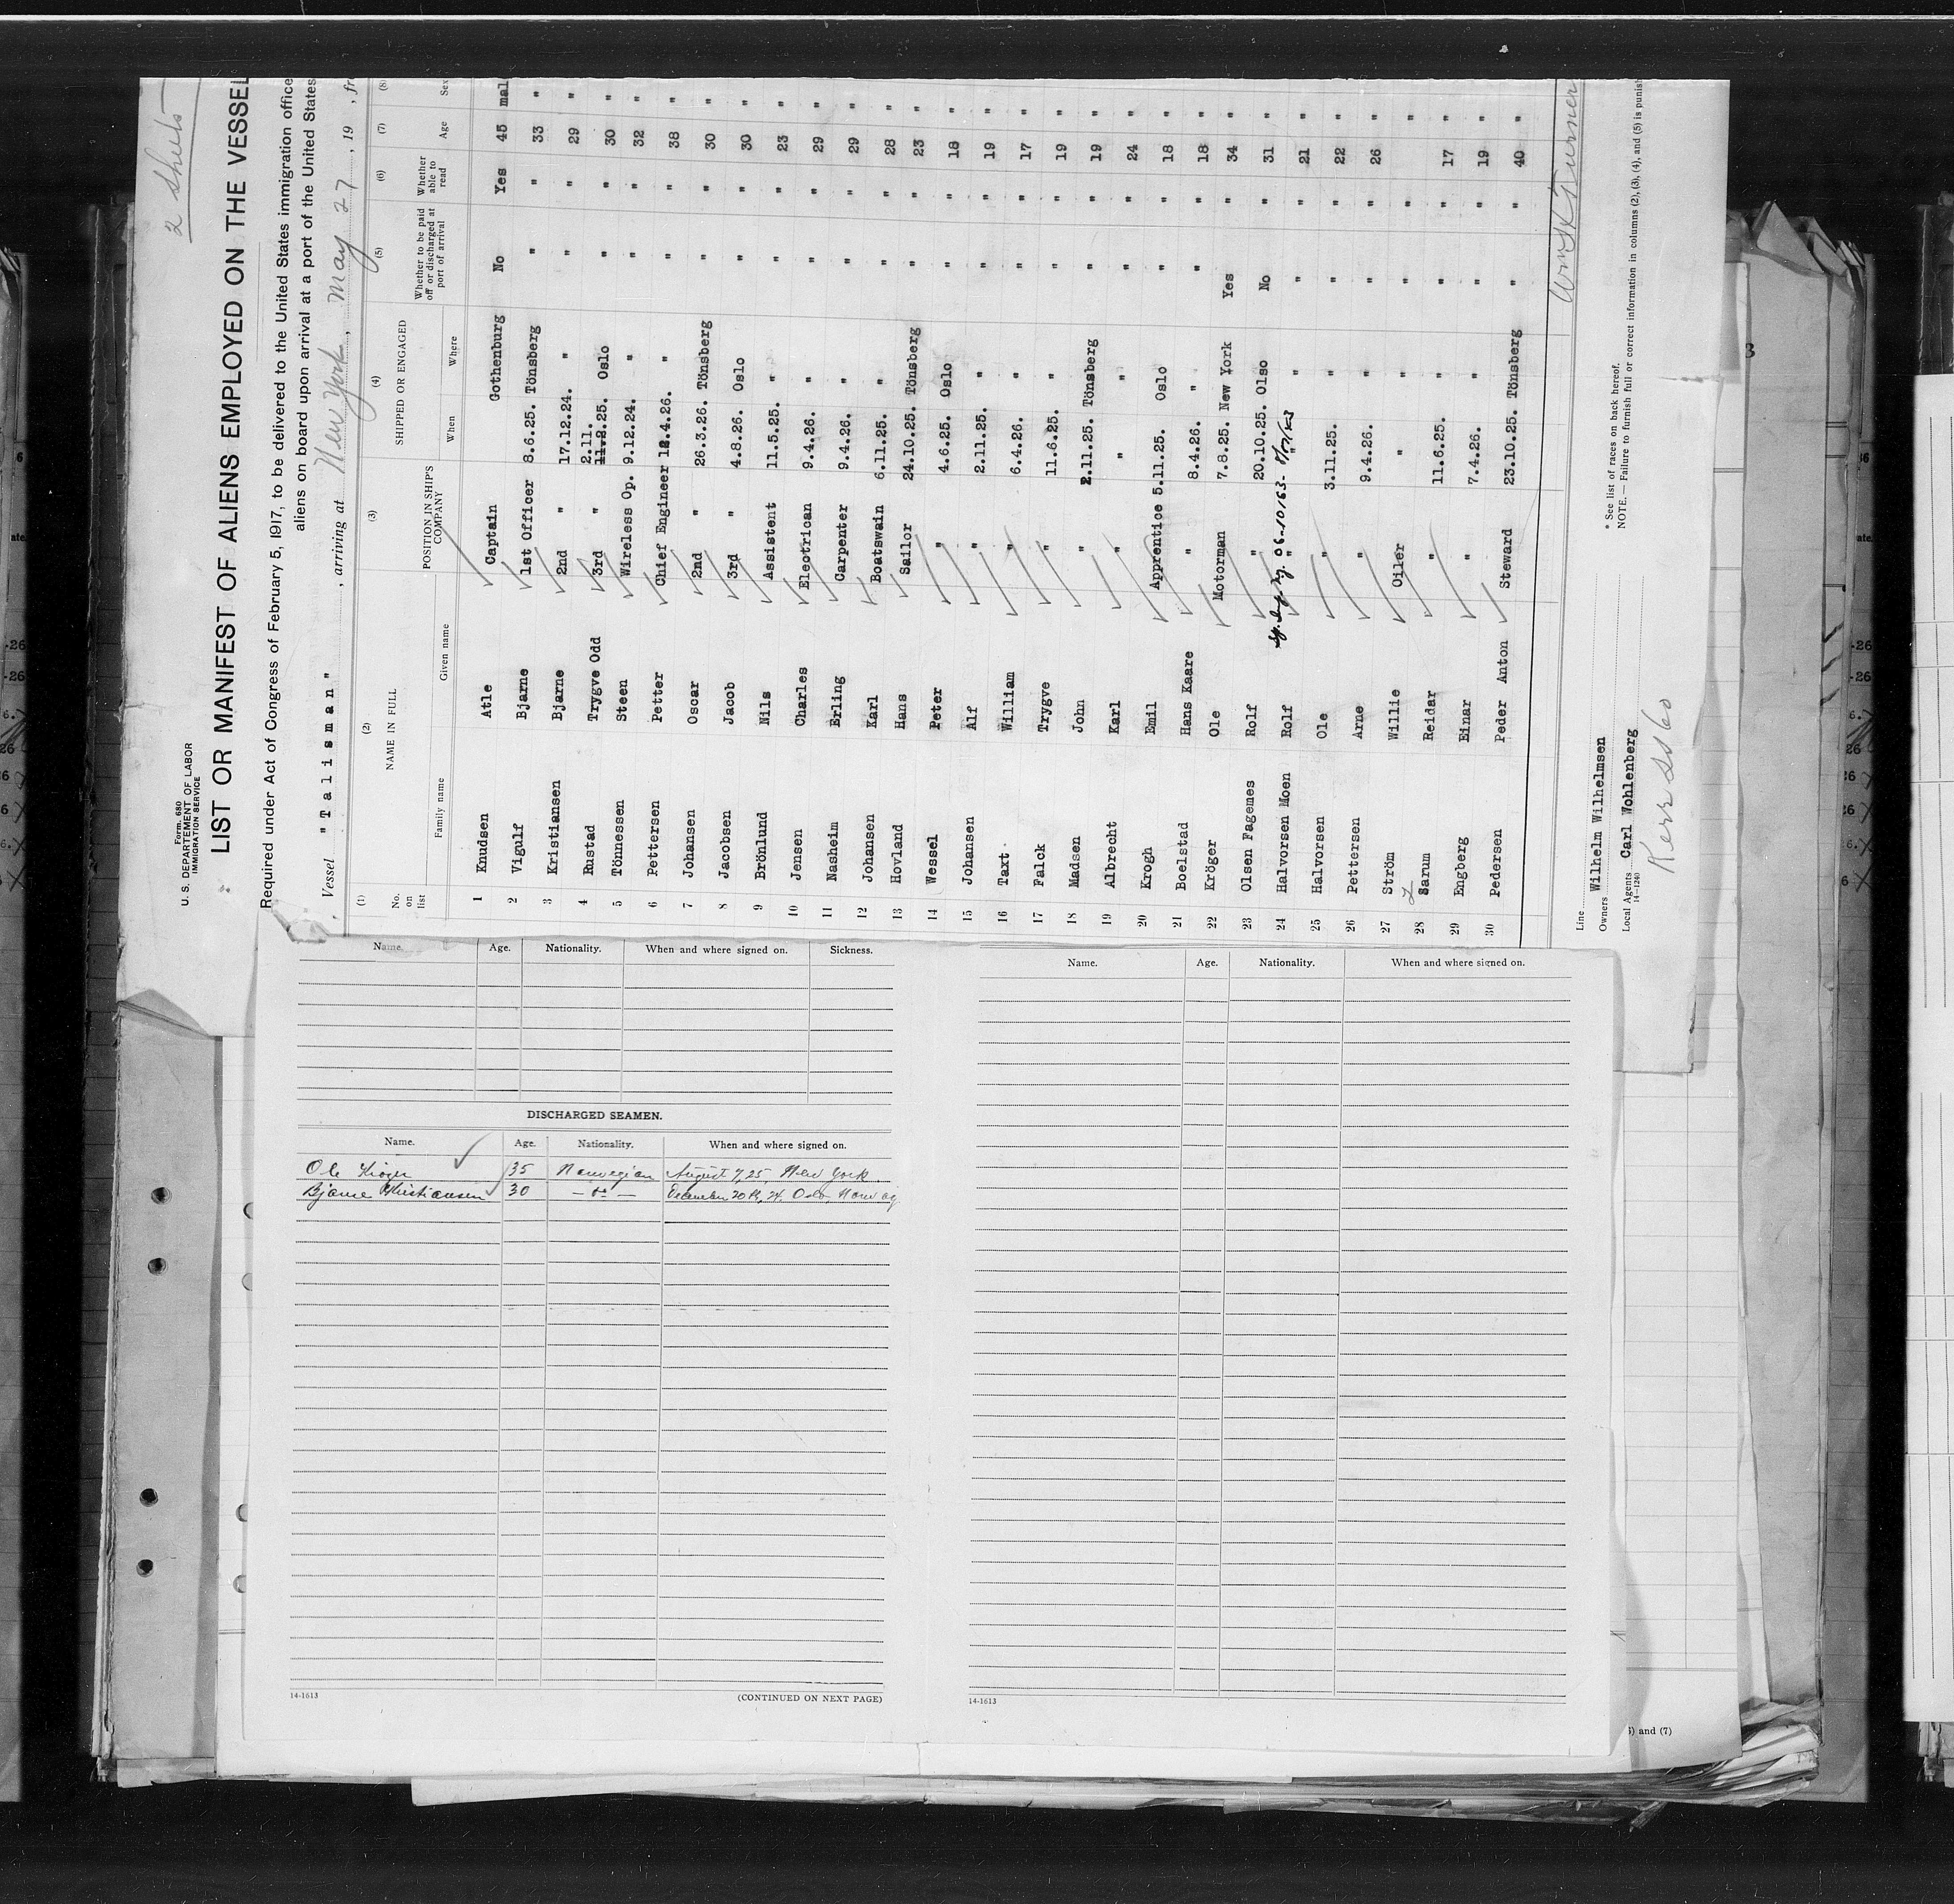 2 Sheets
Form 680
U. S. DEPARTMENT OF LABOR
IMMIGRATION SERVICE
LIST OR MANIFEST OF ALIENS EMPLOYED ON THE VESSEL
Required under Act of Congress of February 5, 1917, to be delivered to the United States immigration office
aliens on board upon arrival at a port of the United States
Vessel "Talisman", arriving at New York, May 27, 19 , fr
(1) (2) (3) (4) (5) (6) (7) (8)
No. on list NAME IN FULL POSITION IN SHIP'S COMPANY SHIPPED OR ENGAGED Whether to be paid off or discharged at port of arrival Whether able to read Age Sex
Family name Given name When Where
1 Knudsen Atle Captain Gothenburg No Yes 45 mal
2 Vigulf Bjarne 1st Officer 8.6.25. Tönsberg " " 33 "
3 Kristiansen Bjarne 2nd " 17.12.24. " " " 29 "
4 Rustad Trygve Odd 3rd " 2.11. 11.2.25. Oslo " " 30 "
5 Tönnessen Steen Wireless Op. 9.12.24. " " " 32 "
6 Pettersen Petter Chief Engineer 12.4.26. " " " 38 "
7 Johansen Oscar 2nd " 26.3.26. Tönsberg " " 30 "
8 Jacobsen Jacob 3rd " 4.8.26. Oslo " " 30 "
9 Brönlund Nils Assistent 11.5.25. " " " 23 "
10 Jensen Charles Electrican 9.4.26. " " " 29 "
11 Nasheim Erling Carpenter 9.4.26. " " " 29 "
12 Johansen Karl Boatswain 6.11.25. " " " 28 "
13 Hovland Hans Sailor 24.10.25. Tönsberg " " 23 "
14 Wessel Peter " 4.6.25. Oslo " " 18 "
15 Johansen Alf " 2.11.25. " " " 19 "
16 Taxt William " 6.4.26. " " " 17 "
17 Falck Trygve " 11.6.25. " " " 19 "
18 Madsen John " 2.11.25. Tönsberg " " 19 "
19 Albrecht Karl " " " " " 24 "
20 Krogh Emil Apprentice 5.11.25. Oslo " " 18 "
21 Boelstad Hans Kaare " 8.4.26. " " " 18 "
22 Kröger Ole Motorman 7.8.25. New York Yes " 34 "
23 Olsen Fagemes Rolf " 20.10.25. Olso No " 31 "
24 Halvorsen Moen Rolf " 06-10163- " " " " 21 "
25 Halvorsen Ole " 3.11.25. " " " 22 "
26 Pettersen Arne " 9.4.26. " " " 26 "
27 Ström Willie Oiler " " " " "
28 Sarum Reidar " 11.6.25. " " " 17 "
29 Engberg Einar " 7.4.26. " " " 19 "
30 Pedersen Peder Anton Steward 23.10.25. Tönsberg " " 40 "
Line
Owners Wilhelm Wilhelmsen
Local Agents Carl Wohlenberg
14-1240
* See list of races on back hereof.
NOTE.—Failure to furnish full or correct information in columns (2), (3), (4), and (5) is punish
Kerr SS Co
Name. Age. Nationality. When and where signed on. Sickness.
DISCHARGED SEAMEN.
Name. Age. Nationality. When and where signed on.
Ole Kröger 35 Norwegian August 7, 25, New York.
Bjarne Kristiansen 30 — do — December 20th, 24. Oslo, Norway
14-1613 (CONTINUED ON NEXT PAGE)
Name. Age. Nationality. When and where signed on.
14-1613
) and (7)